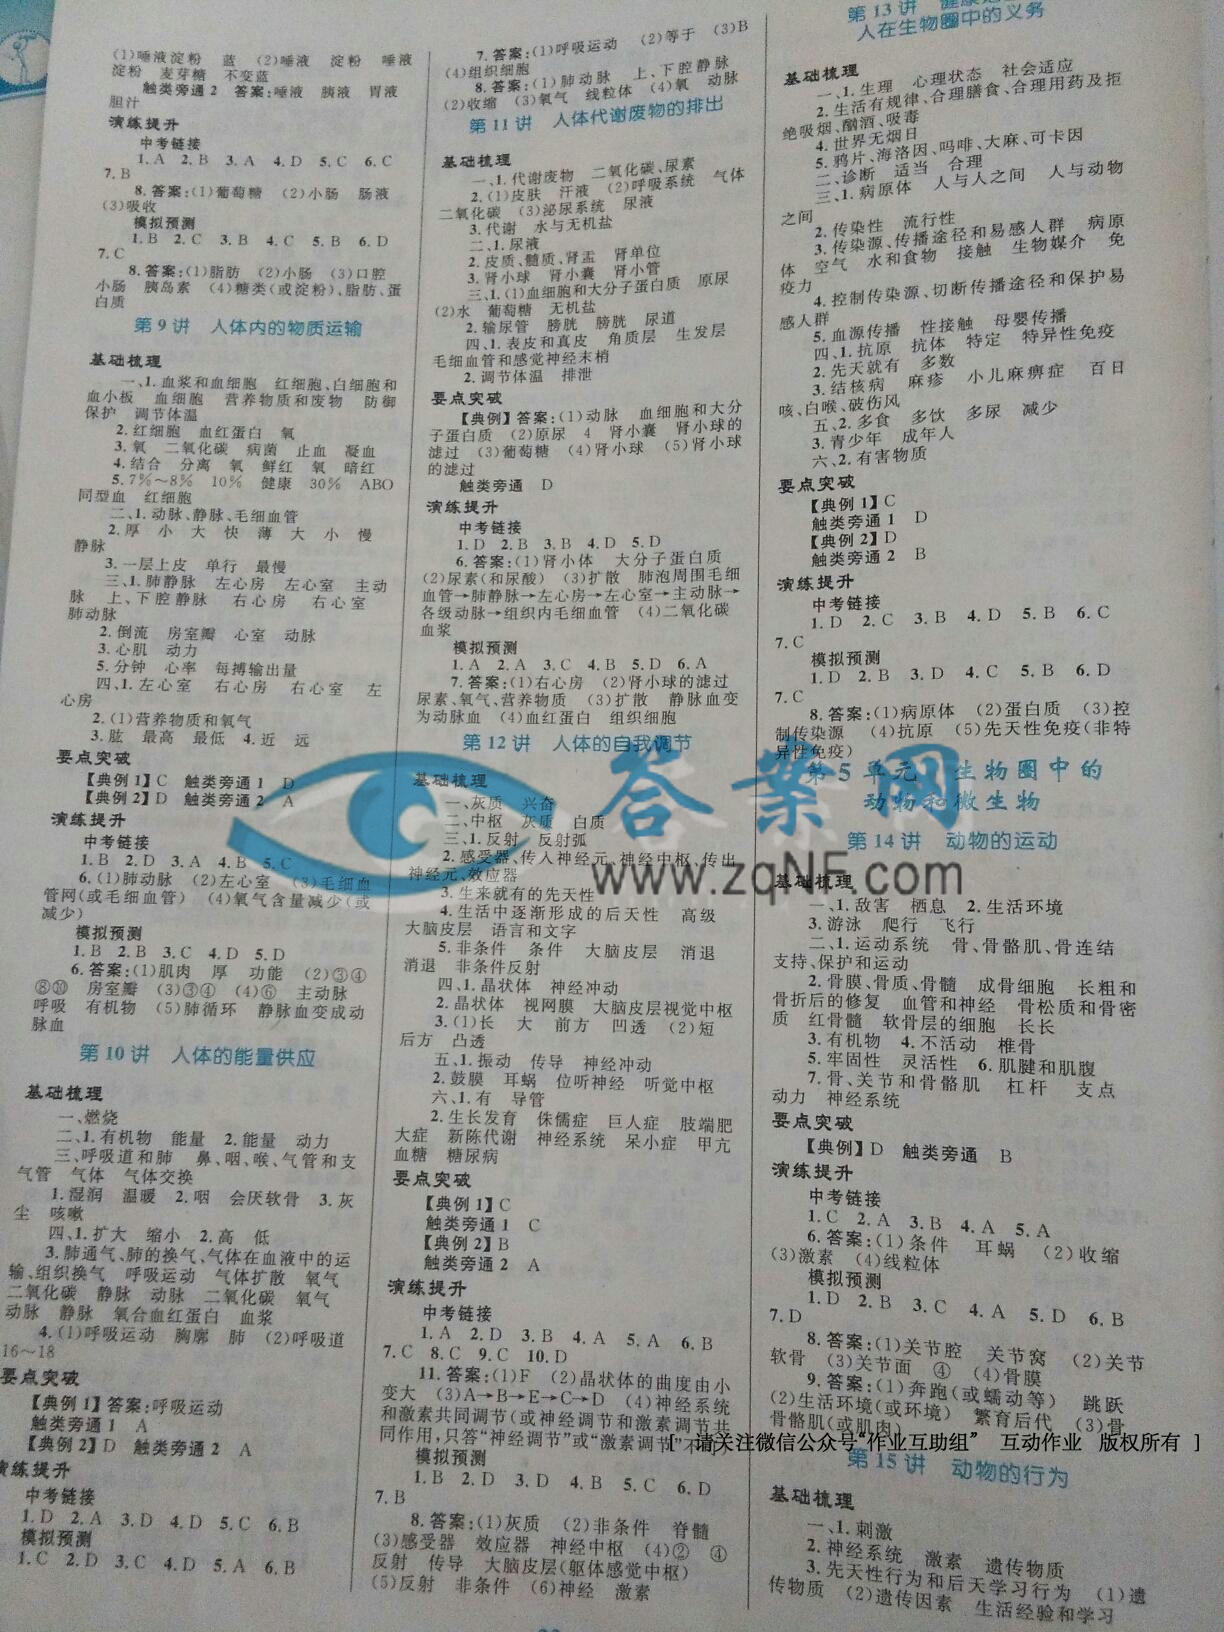 (1)唾液淀粉 蓝 (2)唾液 淀粉 唾液
淀粉 麦芽糖 不变蓝
触类旁通2 答案:唾液 胰液 胃液
胆汁
演练提升
中考链接
1.A 2.B 3.A 4.D 5.C 6.C
7.B
8.答案:(1)葡萄糖 (2)小肠 肠液
(3)吸收
模拟预测
1.B 2.C 3.B 4.C 5.B 6.D
7.C
8.答案:(1)脂肪 (2)小肠 (3)口腔
小肠 胰岛素 (4)糖类(或淀粉)、脂肪、蛋
白质
第9讲 人体内的物质运输
基础梳理
一、1.血浆和血细胞 红细胞、白细胞和
血小板 血细胞 营养物质和废物 防御
保护 调节体温
2.红细胞 血红蛋白 氧
3.氧 二氧化碳 病菌 止血 凝血
4.结合 分离 氧 鲜红 氧 暗红
5.7%~8% 10% 健康 30% ABO
同型血 红细胞
二、1.动脉、静脉、毛细血管
2.厚 小 大 快 薄 大 小 慢
静脉
3.一层上皮 单行 最慢
三、1.肺静脉 左心房 左心室 主动
脉 上、下腔静脉 右心房 右心室
肺动脉
2.倒流 房室瓣 心室 动脉
3.心肌 动力
5.分钟 心率 每搏输出量
四、1.左心室 右心房 右心室 左
心房
2.(1)营养物质和氧气
3.肱 最高 最低 4.近 远
要点突破
【典例1】C 触类旁通1 D
【典例2】D 触类旁通2 A
演练提升
中考链接
1.B 2.D 3.A 4.B 5.C
6.(1)肺动脉 (2)左心室 (3)毛细血
管网(或毛细血管) (4)氧气含量减少(或
减少)
模拟预测
1.B 2.B 3.C 4.D 5.D
6.答案:(1)肌肉 厚 功能 (2)③④
⑧⑩ 房室瓣 (3)③④ (4)⑥ 主动脉
呼吸 有机物 (5)肺循环 静脉血变成动
脉血
第10讲 人体的能量供应
基础梳理
一、燃烧
二、1.有机物 能量 2.能量 动力
三、呼吸道和肺 鼻、咽、喉、气管和支
气管 气体 气体交换
1.湿润 温暖 2.咽 会厌软骨 3.灰
尘 咳嗽
四、1.扩大 缩小 2.高 低
3.肺通气、肺的换气、气体在血液中的运
输、组织换气 呼吸运动 气体扩散 氧气
二氧化碳 静脉 动脉 二氧化碳 氧气
动脉 静脉 氧合血红蛋白 血浆
4.(1)呼吸运动 胸廓 肺 (2)呼吸道
16~18
要点突破
【典例1】答案:呼吸运动
触类旁通1 A
【典例2】D 触类旁通2 A
演练提升
中考链接
1.D 2.A 3.D 4.D 5.C 6.B
模拟预测
1.C 2.D 3.C 4.D 5.A 6.B
7.答案:(1)呼吸运动 (2)等于 (3)B
(4)组织细胞
8.答案:(1)肺动脉 上、下腔静脉
(2)收缩 (3)氧气 线粒体 (4)氧 动脉
第11讲 人体代谢废物的排出
基础梳理
一、1.代谢废物 二氧化碳、尿素
2.(1)皮肤 汗液 (2)呼吸系统 气体
二氧化碳 (3)泌尿系统 尿液
3.代谢 水与无机盐
二、1.尿液
2.皮质、髓质、肾盂 肾单位
3.肾小球 肾小囊 肾小管
三、1.(1)血细胞和大分子蛋白质 原尿
(2)水 葡萄糖 无机盐
2.输尿管 膀胱 膀胱 尿道
四、1.表皮和真皮 角质层 生发层
毛细血管和感觉神经末梢
2.调节体温 排泄
要点突破
【典例】答案:(1)动脉 血细胞和大分
子蛋白质 (2)原尿 4 肾小囊 肾小球的
滤过 (3)葡萄糖 (4)肾小球 (5)肾小球
的滤过
触类旁通 D
演练提升
中考链接
1.D 2.B 3.B 4.D 5.D
6.答案:(1)肾小体 大分子蛋白质
(2)尿素(和尿酸) (3)扩散 肺泡周围毛细
血管→肺静脉→左心房→左心室→主动脉→
各级动脉→组织内毛细血管 (4)二氧化碳
血浆
模拟预测
1.A 2.A 3.C 4.B 5.D 6.A
7.答案:(1)右心房 (2)肾小球的滤过
尿素、氧气、营养物质 (3)扩散 静脉血变
为动脉血 (4)血红蛋白 组织细胞
第12讲 人体的自我调节
基础梳理
一、灰质 兴奋
二、中枢 灰质 白质
三、1.反射 反射弧
2.感受器、传入神经元、神经中枢、传出
神经元、效应器
3.生来就有的先天性
4.生活中逐渐形成的后天性 高级
大脑皮层 语言和文字
5.非条件 条件 大脑皮层 消退
消退 非条件反射
四、1.晶状体 神经冲动
2.晶状体 视网膜 大脑皮层视觉中枢
3.(1)长 大 前方 凹透 (2)短
后方 凸透
五、1.振动 传导 神经冲动
2.鼓膜 耳蜗 位听神经 听觉中枢
六、1.有 导管
2.生长发育 侏儒症 巨人症 肢端肥
大症 新陈代谢 神经系统 呆小症 甲亢
血糖 糖尿病
要点突破
【典例1】C
触类旁通1 C
【典例2】B
触类旁通2 A
演练提升
中考链接
1.A 2.D 3.B 4.A 5.A 6.B
7.C 8.C 9.C 10.D
11.答案:(1)F (2)晶状体的曲度由小
变大 (3)A→B→E→C→D (4)神经系统
和激素共同调节(或神经调节和激素调节共
同作用,只答“神经调节”或“激素调节”不
模拟预测
1.B 2.D 3.D 4.B 5.C 6.D
7.B
8.答案:(1)灰质 (2)非条件 脊髓
(3)感受器 效应器 神经中枢 (4)② ④
反射 传导 大脑皮层(躯体感觉中枢)
(5)反射 非条件 (6)神经 激素
第13讲
人在生物圈中的义务
基础梳理
一、1.生理 心理状态 社会适应
2.生活有规律、合理膳食、合理用药及拒
绝吸烟、酗酒、吸毒
4.世界无烟日
5.鸦片、海洛因、吗啡、大麻、可卡因
二、诊断 适当 合理
三、1.病原体 人与人之间 人与动物
之间
2.传染性 流行性
3.传染源、传播途径和易感人群 病原
体 空气 水和食物 接触 生物媒介 免
疫力
4.控制传染源、切断传播途径和保护易
感人群
5.血源传播 性接触 母婴传播
四、1.抗原 抗体 特定 特异性免疫
2.先天就有 多数
3.结核病 麻疹 小儿麻痹症 百日
咳、白喉、破伤风
五、2.多食 多饮 多尿 减少
3.青少年 成年人
六、2.有害物质
要点突破
【典例1】C
触类旁通1 D
【典例2】D
触类旁通2 B
演练提升
中考链接
1.D 2.C 3.B 4.D 5.B 6.C
7.C
模拟预测
1.D 2.B 3.D 4.C 5.B 6.B
7.C
8.答案:(1)病原体 (2)蛋白质 (3)控
制传染源 (4)抗原 (5)先天性免疫(非特
异性免疫)
第5单元 生物圈中的
动物和微生物
第14讲 动物的运动
基础梳理
一、1.敌害 栖息 2.生活环境
3.游泳 爬行 飞行
二、1.运动系统 骨、骨骼肌、骨连结
支持、保护和运动
2.骨膜、骨质、骨髓 成骨细胞 长粗和
骨折后的修复 血管和神经 骨松质和骨密
质 红骨髓 软骨层的细胞 长长
3.有机物 4.不活动 椎骨
5.牢固性 灵活性 6.肌腱和肌腹
7.骨、关节和骨骼肌 杠杆 支点
动力 神经系统
要点突破
【典例】D 触类旁通 B
演练提升
中考链接
1.C 2.A 3.B 4.A 5.A
6.答案:(1)条件 耳蜗 (2)收缩
(3)激素 (4)线粒体
模拟预测
1.D 2.B 3.C 4.A 5.D 6.B
7.D
8.答案:(1)关节腔 关节窝 (2)关节
软骨 (3)关节面 ④ (4)骨膜
9.答案:(1)奔跑(或蠕动等) 跳跃
(2)生活环境(或环境) 繁育后代 (3)骨
骨骼肌(或肌肉)
[ 请关注微信公众号“作业互助组” 互动作业 版权所有 ]
第15讲 动物的行为
基础梳理
一、1.刺激
2.神经系统 激素 遗传物质
3.先天性行为和后天学习行为 (1)遗
传物质 (2)遗传因素 生活经验和学习
答案网
www.zqNF.com